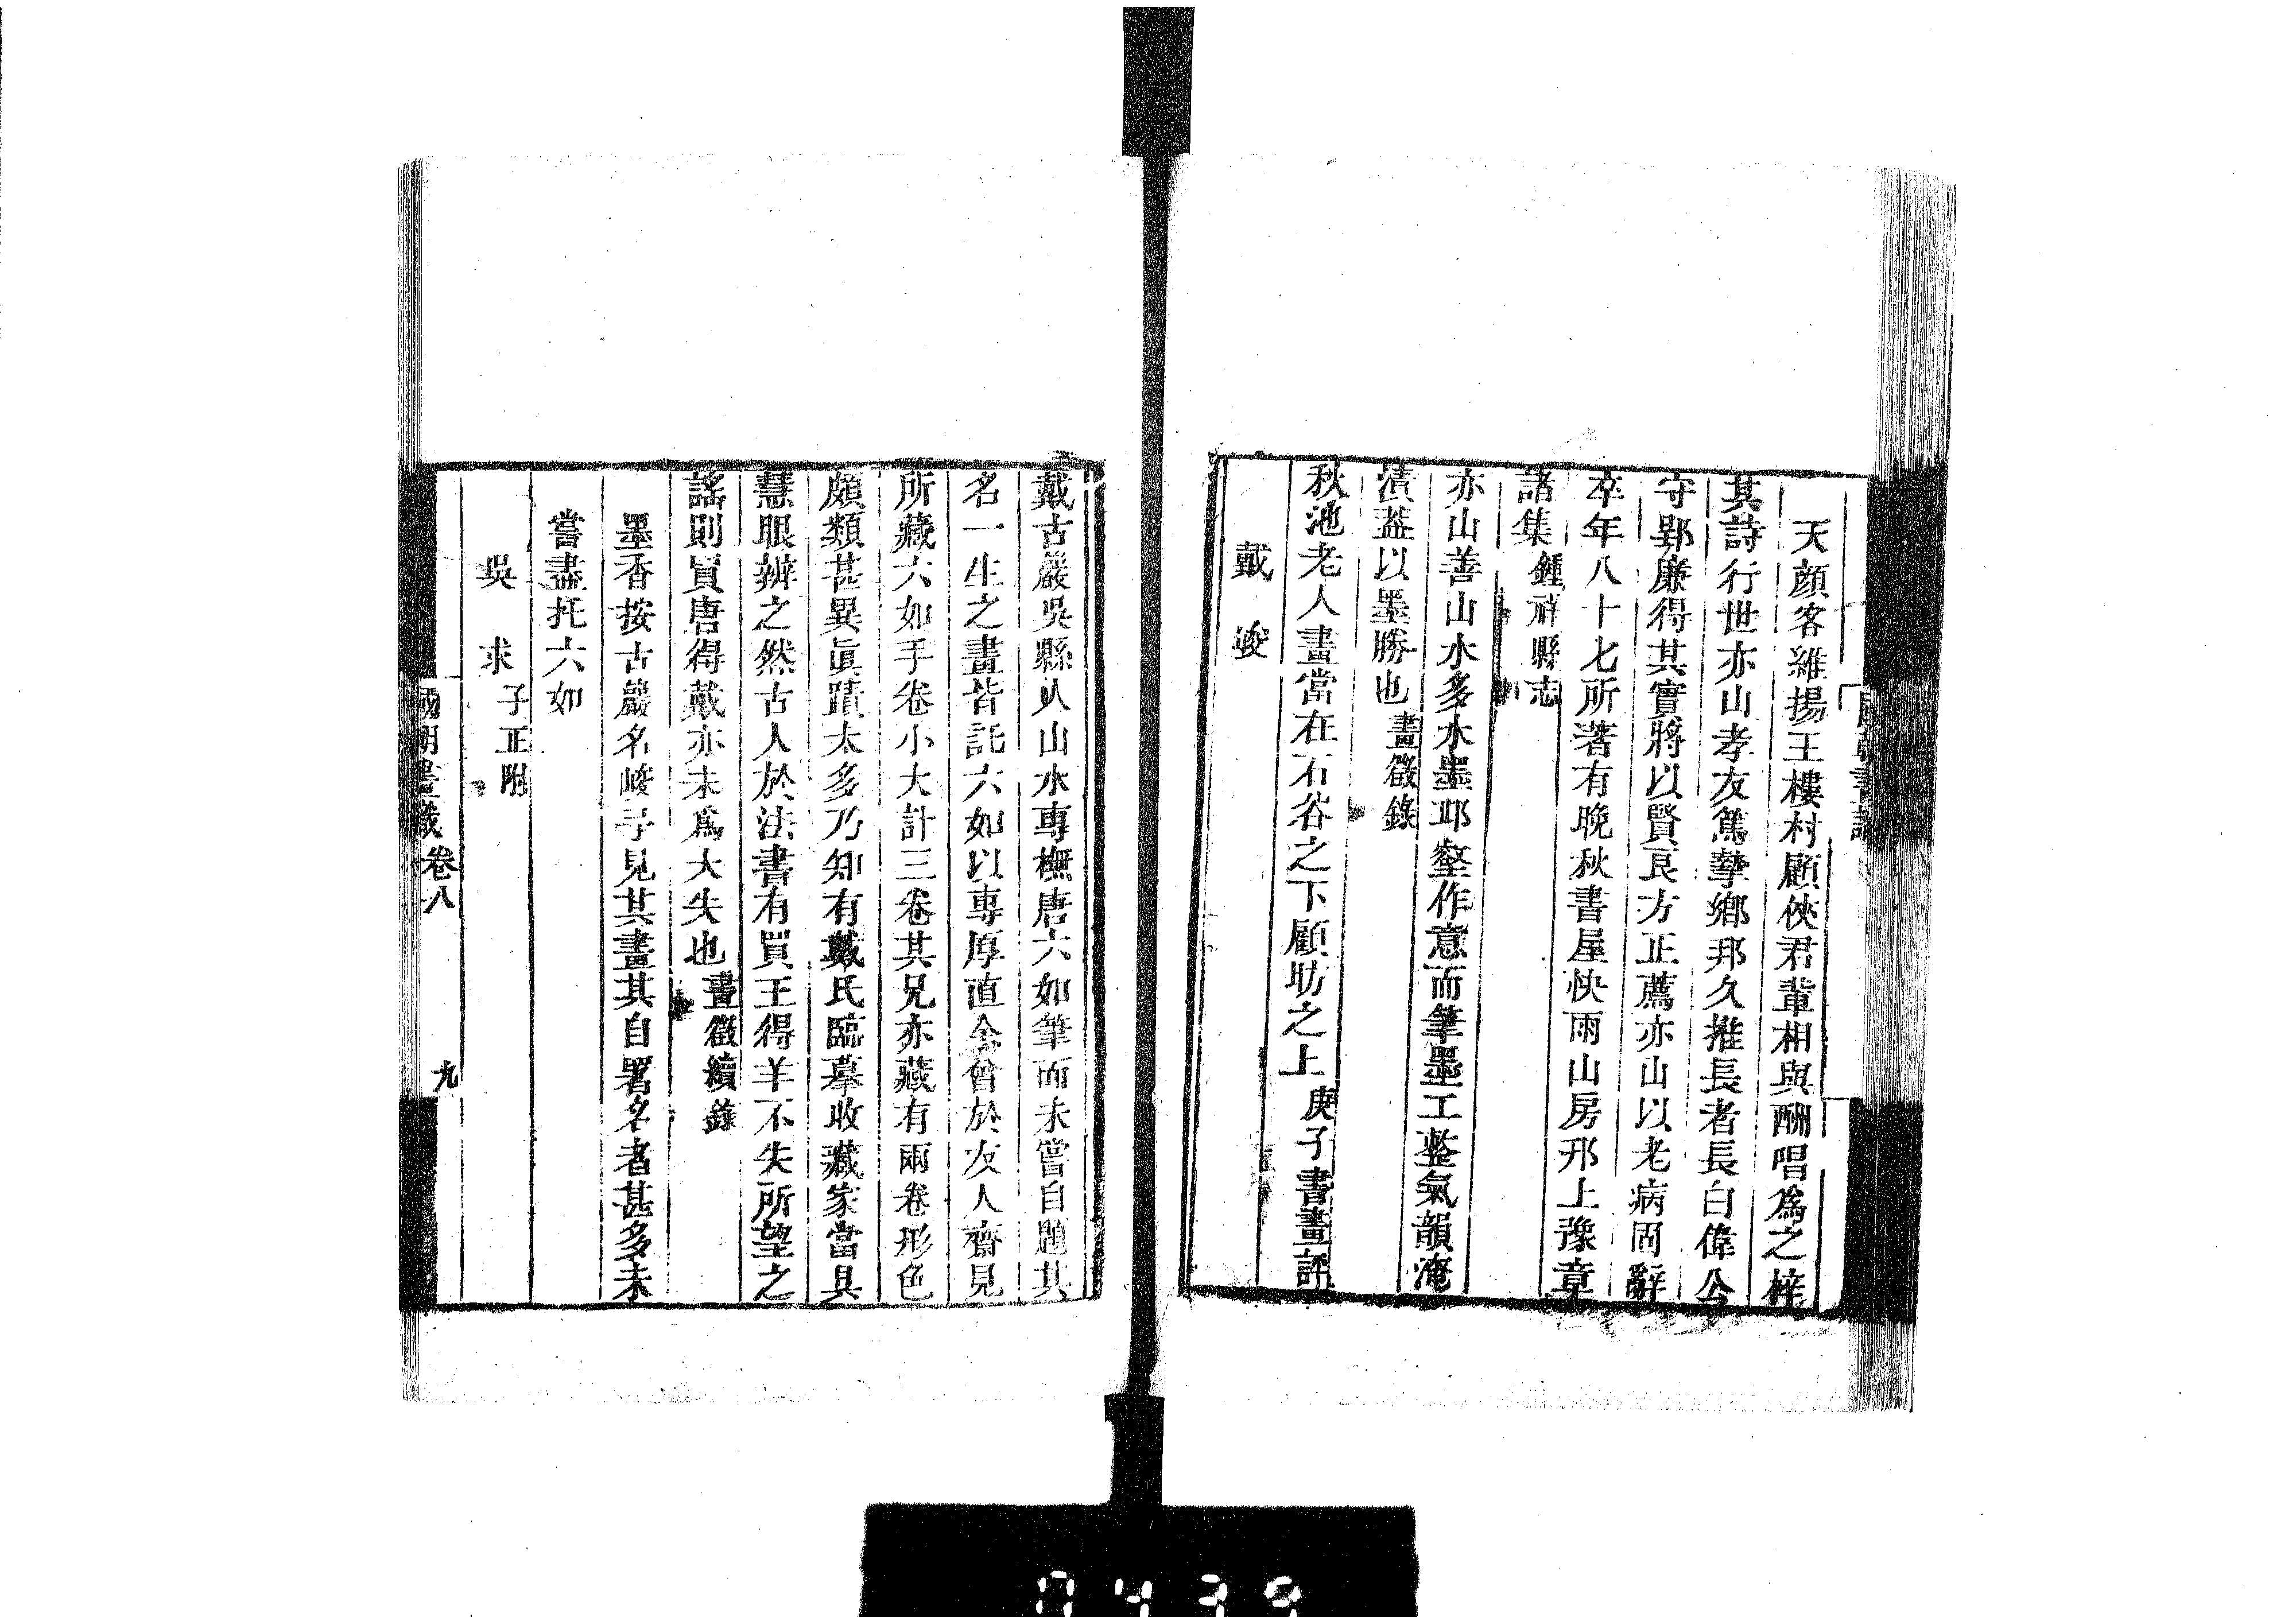 天顏客維揚王樓村顧俠君輩相與酬唱爲之梓
其詩行世亦山孝友篤摯鄉邦久推長者長白偉公
守郢廉得其實將以賢良方正薦亦山以老病固辭
卒年八十七所著有晚秋書屋快雨山房邗上豫章
諸集鍾祥縣志
亦山善山水多水墨邱壑作意而筆墨工整氣韻淹
漬葢以墨勝也畫徵錄
秋池老人畫當在石谷之下顧昉之上庚子書畫評
戴　峻
戴古巖吳縣人山水專橅唐六如筆而未嘗自題其
名一生之畫皆託六如以專厚直余曾於友人齋見
所藏六如手卷小大計三卷其兄亦藏有兩卷形色
頗類甚異眞蹟太多乃知有戴氏臨摹收藏家當具
慧眼辨之然古人於法書有買王得羊不失所望之
謠則買唐得戴亦未爲大失也畫徵續錄
墨香按古巖名峻予見其畫其自署名者甚多未
嘗盡托六如
吳　求子正附
國朝畫識 卷八 九
0439